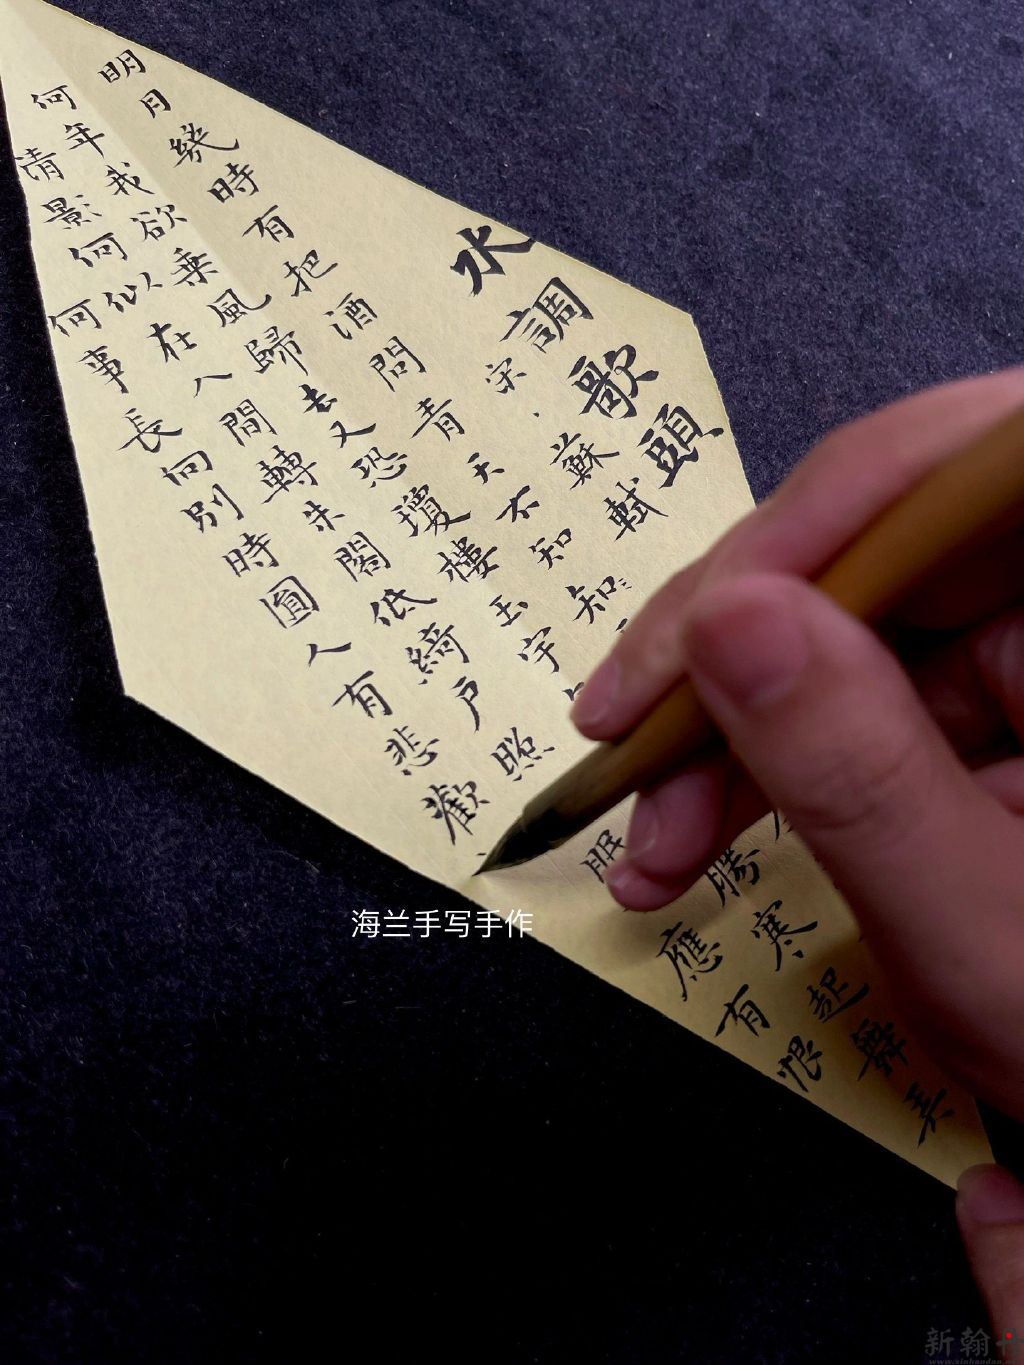 水調歌頭
宋、蘇軾
明月幾時有把酒問青天不知知
何年我欲乘風歸去又恐瓊樓玉宇勝寒起舞弄
清影何似在人間轉朱閣低綺戶照眠應有恨
何事長向別時圓人有悲歡
海兰手写手作
新翰